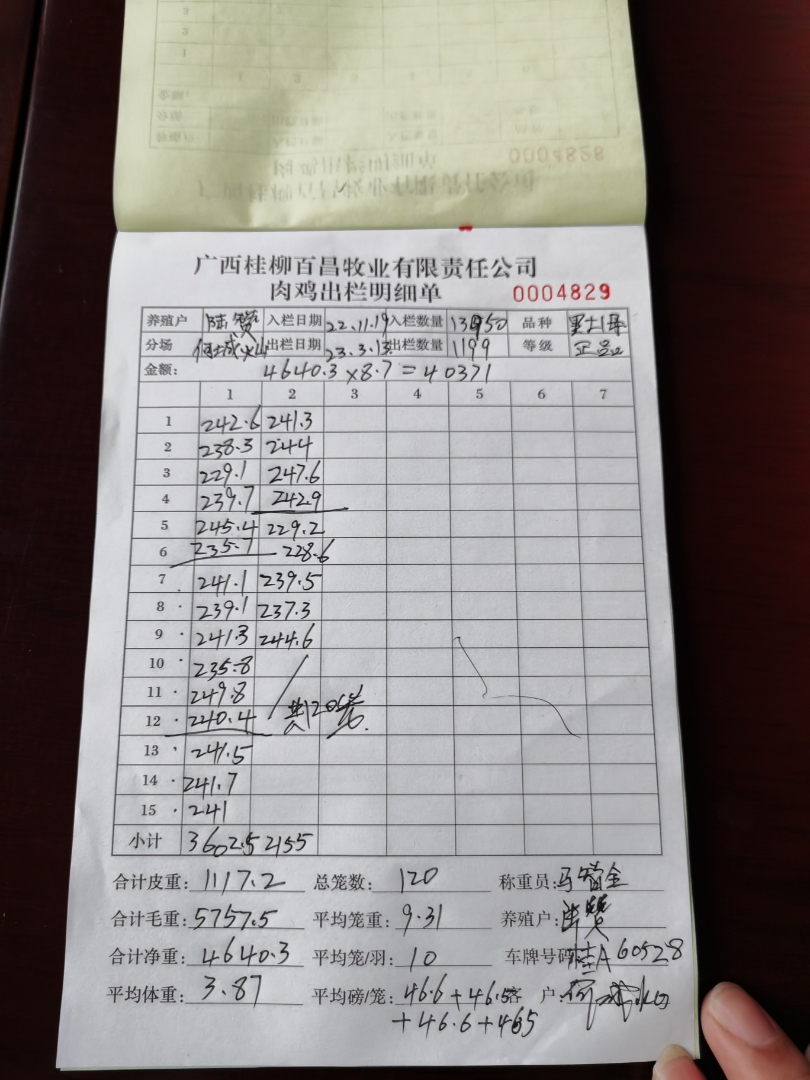 0004828
广西桂柳百昌牧业有限责任公司
肉鸡出栏明细单 0004829
养殖户 陆赞 入栏日期 22.11.19 入栏数量 13950 品种 黑土1号
分场 火山 出栏日期 23.3.13 出栏数量 1199 等级 正品
金额: 4640.3×8.7=40371
1 2 3 4 5 6 7
1 242.6 241.3
2 238.3 244
3 229.1 247.6
4 239.7 242.9
5 245.4 229.2
6 235.7 228.6
7 241.1 239.5
8 239.1 237.3
9 241.3 244.6
10 235.8
11 249.8
12 240.4 共120笼.
13 241.5
14 241.7
15 241
小计 3602.5 2155
合计皮重: 1117.2 总笼数: 120 称重员:
合计毛重: 5757.5 平均笼重: 9.31 养殖户: 陆赞
合计净重: 4640.3 平均笼/羽: 10 车牌号码 桂A60528
平均体重: 3.87 平均磅/笼: 46.6+46.5 客 户:
+46.6+465